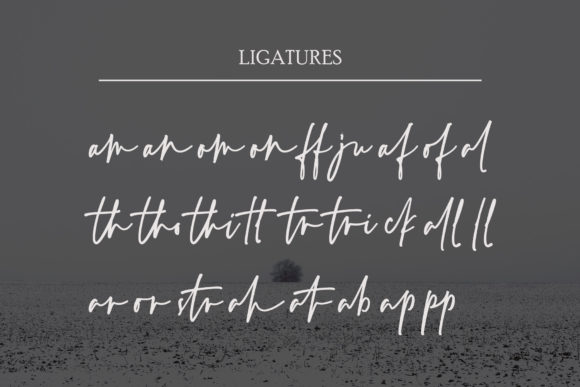 LIGATURES
am an om on ff ju af of al
th tho thi tt tr tri ck all ll
ar or str ah at ab ap pp